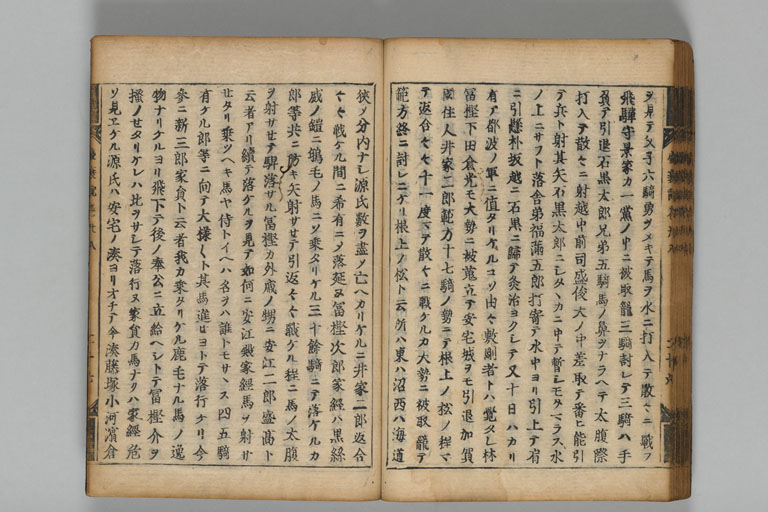 ヲ見テ父子六騎勇ヲメキテ馬ヲ水ニ打入テ散々ニ戰フ
飛驒守景家カ一黨ノ中ニ被取籠三騎討レテ三騎ハ手
負テ引退石黒太郎兄弟五騎馬ノ鼻ヲナラヘテ太腹際
打入テ散々ニ射越中前司盛俊大ノ中差取テ番ヒ能引
テ兵ト射其矢石黒太郎ニシタヽカニ中テ暫モタマラス水
ノ上ニサフト落合弟福満五郎打寄テ水中ヨリ引上テ肩
ニ引懸朴坂越ニ石黒ニ歸テ灸治ヨクシテ又十日ハカリ
有テ都波ノ軍ニ値タリケルコソ由々敷剛者トハ覺タレ林
冨樫下田倉光モ大勢ニ被蒐立テ安宅城ヲモ引退加賀
國住人井家二郎範方十七騎ノ勢ニテ根上ノ松ノ程マ
テ返合々々十一度マテ散々ニ戰ケルカ大勢ニ被取籠テ
範方終ニ討レニケリ根上ノ松ト云所ハ東ハ沼西ハ海道
狹ノ分内ナシ源氏數ヲ盡メ亡ヘカリケルニ井家二郎返合
々々戰ケル間ニ希有ニメ落延ヌ冨樫次郎家經ハ黒絲
威ノ鎧ニ鴾毛ノ馬ニソ乗タリケル三十餘騎ニテ落ケルカ
郎等共ニ防キ矢射サセテ引返々々戰ケル程ニ馬ノ太腹
ヲ射サセテ騨落サル冨樫カ外戚ノ甥ニ安江二郎盛高ト
云者アリ續テ落ケルヲ見テ如何ニ安江殿家經馬ヲ射サ
セタリ乗ツヘキ馬ヤ侍トイヘハ名ヲハ誰トモサヽス四五騎
有ケル郎等ニ向テ大様ノ〱ト其馬進セヨトテ落行ケリ今
參ニ新三郎家員ト云者我カ乗タリケル鹿毛ナル馬ノ逸
物ナリケルヨリ飛下テ後ノ奉公ニ立給ヘシトテ冨樫介ヲ
搔ノセタリケレハ此ヲサレテ落行ヌ家員カ馬ナリハ家經危
ソ見エケル源氏ハ安宅ノ湊ヨリオチテ今湊藤塚小河濱倉